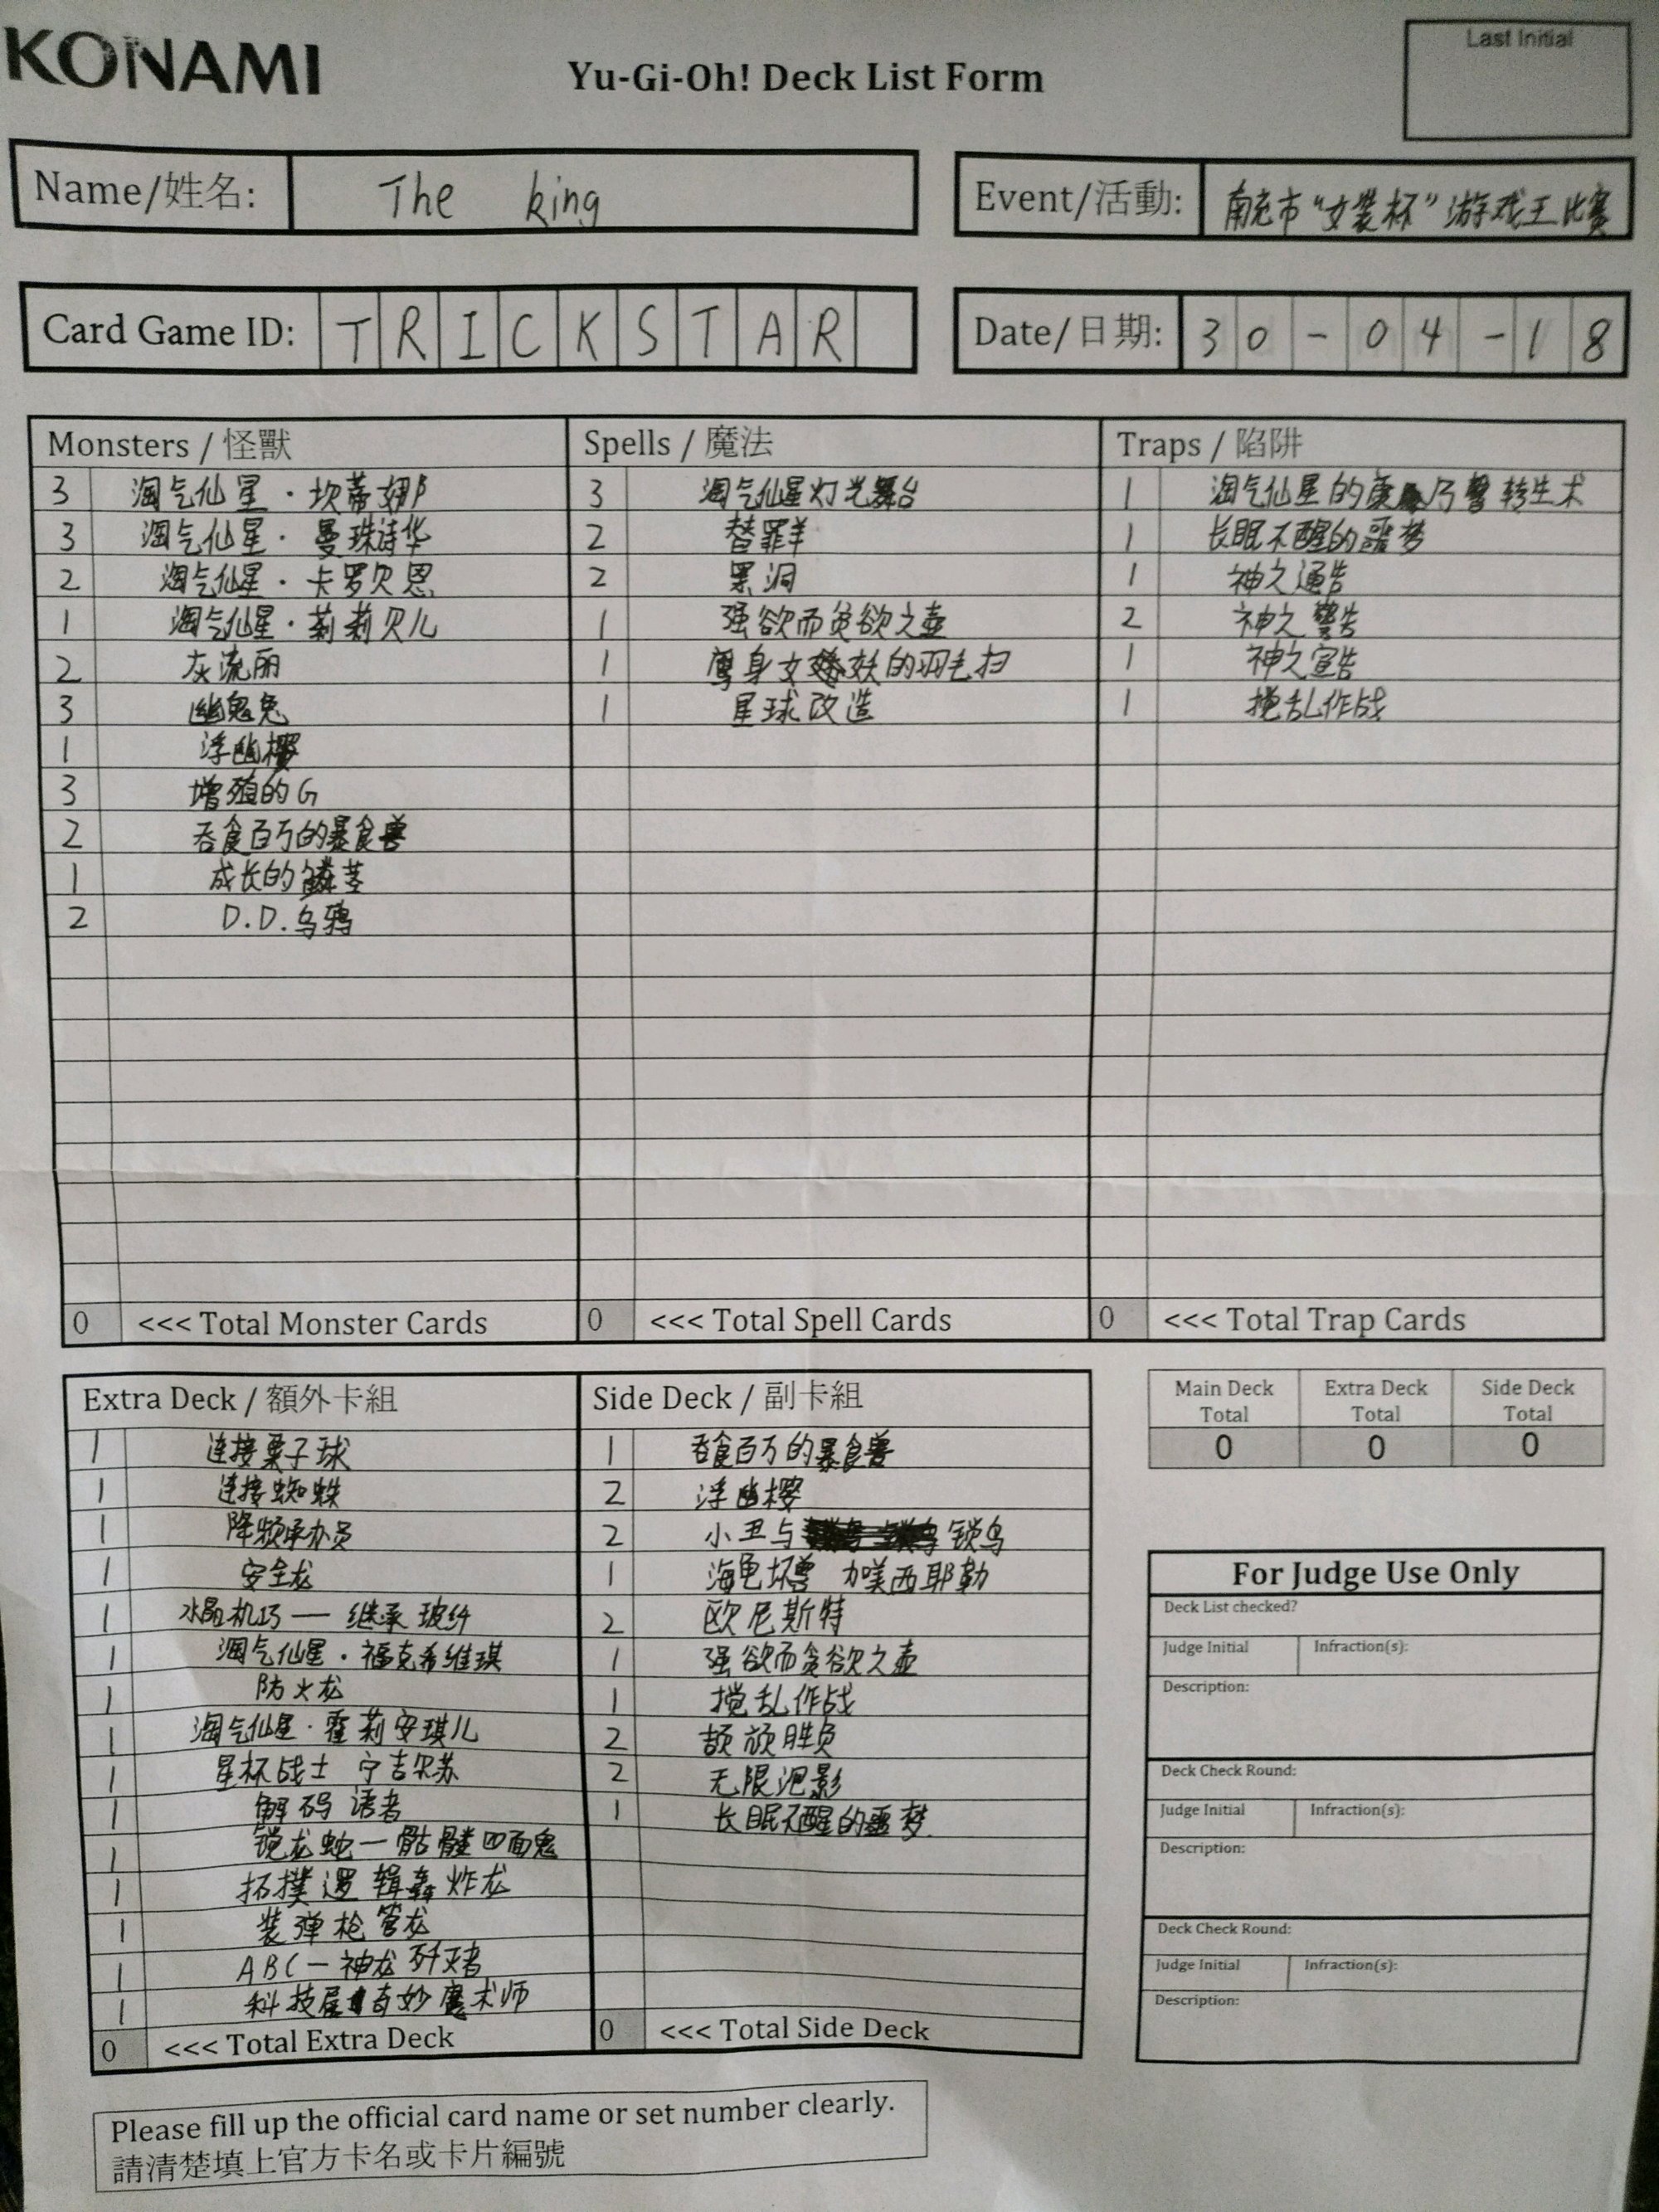 KONAMI
Yu-Gi-Oh! Deck List Form
Last Initial
Name/姓名: The king
Event/活動: 南充市“女装杯”游戏王比赛
Card Game ID: TRICKSTAR
Date/日期: 30-04-18
Monsters / 怪獸
3 淘气仙星·坎蒂娜
3 淘气仙星·曼珠诗华
2 淘气仙星·卡罗贝恩
1 淘气仙星·莉莉贝儿
2 灰流丽
3 幽鬼兔
1 浮幽樱
3 增殖的G
2 吞食百万的暴食兽
1 成长的鳞茎
2 D.D.乌鸦
0 <<< Total Monster Cards
Spells / 魔法
3 淘气仙星灯光舞台
2 替罪羊
2 黑洞
1 强欲而贪欲之壶
1 鹰身女妖的羽毛扫
1 星球改造
0 <<< Total Spell Cards
Traps / 陷阱
1 淘气仙星的 转生术
1 长眠不醒的噩梦
1 神之通告
2 神之警告
1 神之宣告
1 搅乱作战
0 <<< Total Trap Cards
Extra Deck / 額外卡組
1 连接栗子球
1 连接蜘蛛
1 降频承办员
1 安全龙
1 水晶机巧——继承玻纤
1 淘气仙星·福克希维琪
1 防火龙
1 淘气仙星·霍莉安琪儿
1 星杯战士 宁吉尔苏
1 解码语者
1 锁龙蛇—骷髅四面鬼
1 拓撲逻辑轰炸龙
1 装弹枪管龙
1 ABC—神龙歼灭者
1 科技属 奇妙魔术师
0 <<< Total Extra Deck
Side Deck / 副卡組
1 吞食百万的暴食兽
2 浮幽樱
2 小丑与 锁鸟
1 海龟坏兽 加美西耶勒
2 欧尼斯特
1 强欲而贪欲之壶
1 搅乱作战
2 颉颃胜负
2 无限泡影
1 长眠不醒的噩梦
0 <<< Total Side Deck
Main Deck Total
Extra Deck Total
Side Deck Total
0 0 0
For Judge Use Only
Deck List checked?
Judge Initial Infraction(s):
Description:
Deck Check Round:
Judge Initial Infraction(s):
Description:
Deck Check Round:
Judge Initial Infraction(s):
Description:
Please fill up the official card name or set number clearly.
請清楚填上官方卡名或卡片編號